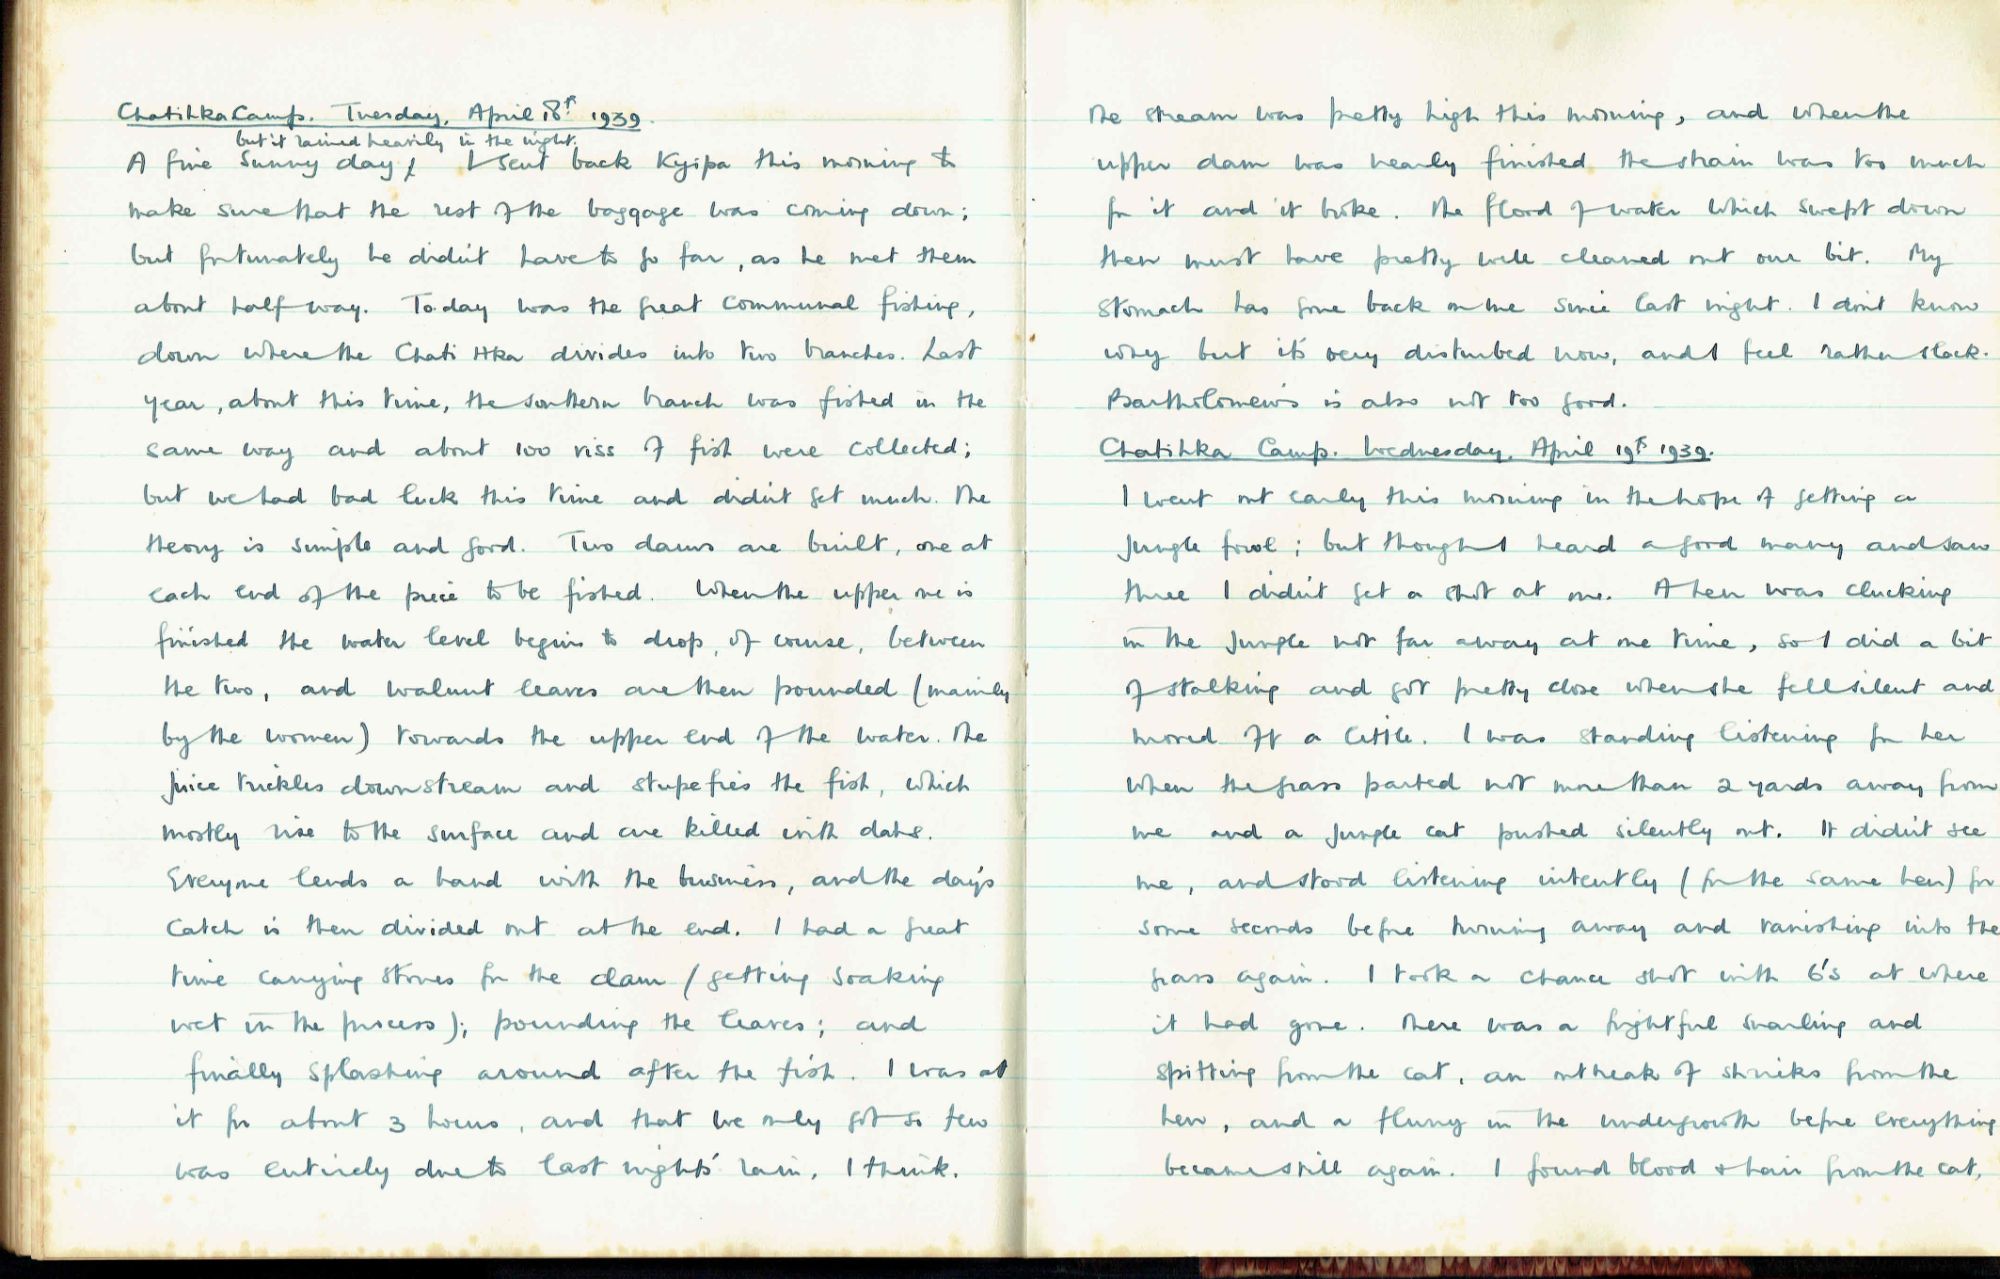 Chatihka Camp. Tuesday, April 18th 1939.
but it rained heavily in the night.
A fine sunny day, I sent back Kyipa this morning to
make sure that the rest of the baggage was coming down;
but fortunately he didn't have to go far, as he met them
about half way. Today was the great communal fishing,
down where the Chati Hka divides into two branches. Last
year, about this time, the southern branch was fished in the
same way and about 100 viss of fish were collected;
but we had bad luck this time and didn't get much. The
theory is simple and good. Two dams are built, one at
each end of the piece to be fished. When the upper one is
finished the water level begins to drop, of course, between
the two, and walnut leaves are then pounded (mainly
by the women) towards the upper end of the water. The
juice trickles downstream and stupefies the fish, which
mostly rise to the surface and are killed with dahs.
Everyone lends a hand with the business, and the day's
catch is then divided out at the end. I had a great
time carrying stones for the dam (getting soaking
wet in the process); pounding the leaves; and
finally splashing around after the fish. I was at
it for about 3 hours, and that we only got so few
was entirely due to last night's rain, I think.
The stream was pretty high this morning, and when the
upper dam was nearly finished the strain was too much
for it and it broke. The flood of water which swept down
then must have pretty well cleaned out our bit. My
stomach has gone back on me since last night. I don't know
why but it's very disturbed now, and I feel rather slack.
Bartholomew's is also not too good.
Chatihka Camp. Wednesday, April 19th 1939.
I went out early this morning in the hope of getting a
jungle fowl; but though I heard a good many and saw
three I didn't get a shot at one. A hen was clucking
in the jungle not far away at one time, so I did a bit
of stalking and got pretty close when she fell silent and
moved off a little. I was standing listening for her
when the grass parted not more than 2 yards away from
me and a jungle cat pushed silently out. It didn't see
me, and stood listening intently (for the same hen) for
some seconds before turning away and vanishing into the
grass again. I took a chance shot with 6's at where
it had gone. There was a frightful snarling and
spitting from the cat, an outbreak of shrieks from the
hen, and a flurry in the undergrowth before everything
became still again. I found blood & hair from the cat,